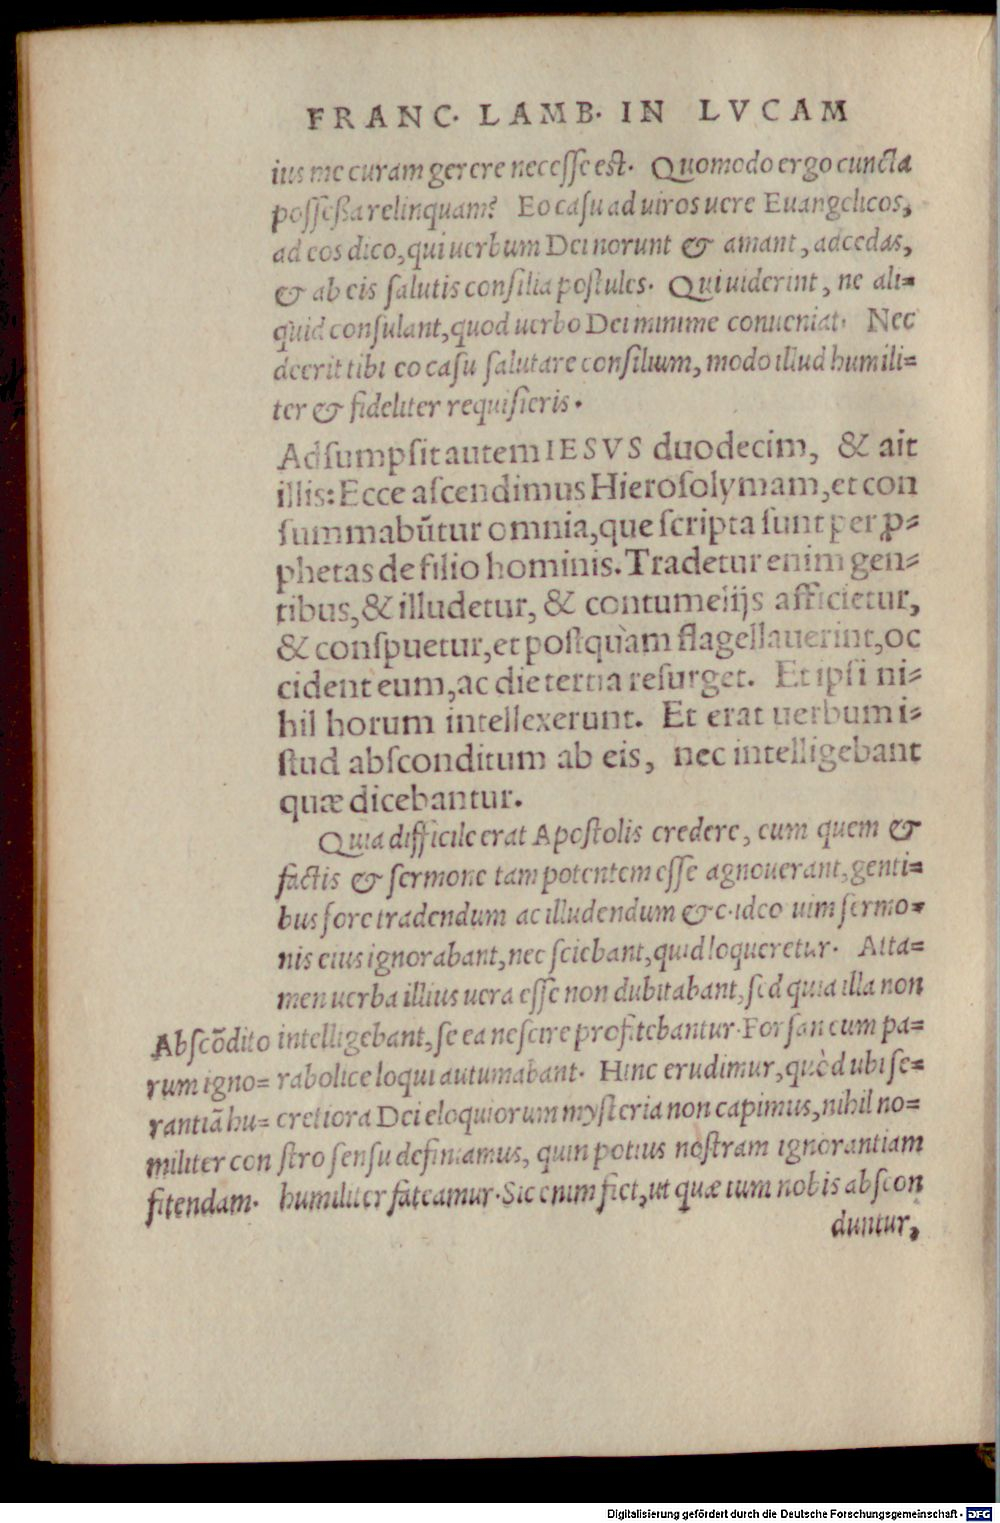 FRANC. LAMB. IN LVCAM
ius me curam gerere necesse est. Quomodo ergo cuncta
possessa relinquam? Eo casu ad uiros uere Euangelicos,
ad eos dico, qui uerbum Dei norunt & amant, accedas,
& ab eis salutis consilia postules. Qui uiderint, ne ali=
quid consulant, quod uerbo Dei minime conueniat. Nec
deerit tibi eo casu salutare consilium, modo illud humili=
ter & fideliter requisieris.
Adsumpsit autem IESVS duodecim, & ait
illis: Ecce ascendimus Hierosolymam, et con
summabūtur omnia, que scripta sunt per ꝓ=
phetas de filio hominis. Tradetur enim gen=
tibus, & illudetur, & contumelijs afficietur,
& conspuetur, et postquàm flagellauerint, oc
cident eum, ac die tertia resurget. Et ipsi ni=
hil horum intellexerunt. Et erat uerbum i=
stud absconditum ab eis, nec intelligebant
quæ dicebantur.
Quia difficile erat Apostolis credere, eum quem &
factis & sermone tam potentem esse agnouerant, genti=
bus fore tradendum ac illudendum &c. ideo uim sermo=
nis eius ignorabant, nec sciebant, quid loqueretur. Atta=
men uerba illius uera esse non dubitabant, sed quia illa non
intelligebant, se ea nescire profitebantur. Forsan eum pa=
rabolice loqui autumabant. Hinc erudimur, quòd ubi se=
cretiora Dei eloquiorum mysteria non capimus, nihil no=
stro sensu definiamus, quin potius nostram ignorantiam
humiliter fateamur. Sic enim fiet, ut quæ tum nobis abscon
duntur,
Abscōdito
rum igno=
rantiā hu=
militer con
fitendam.
Digitalisierung gefördert durch die Deutsche Forschungsgemeinschaft - DFG